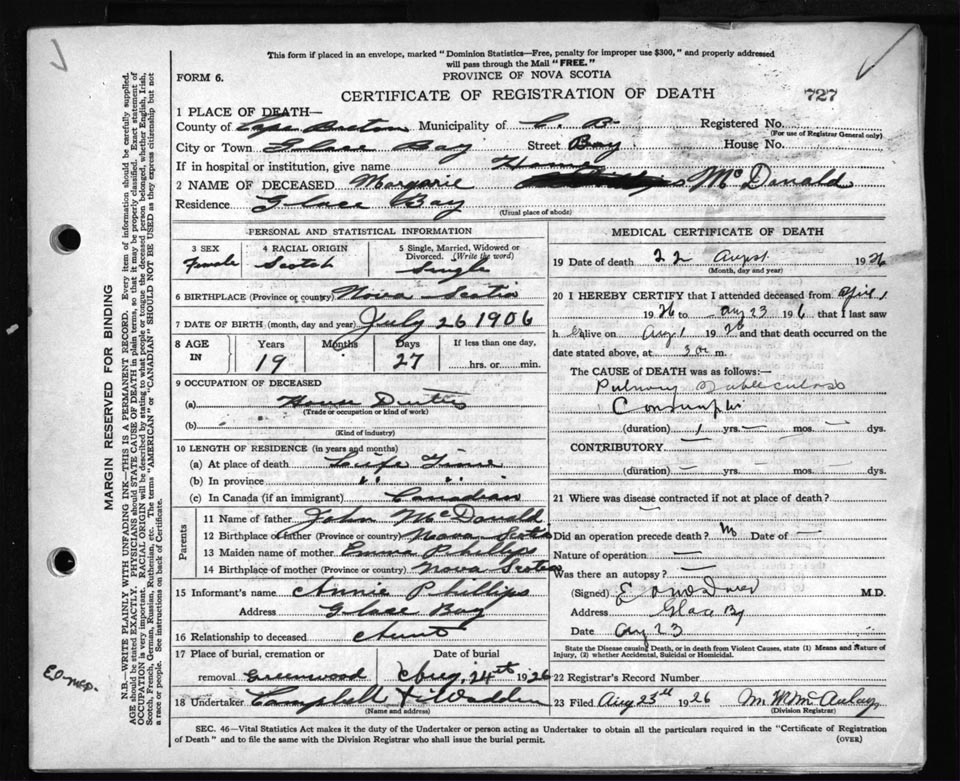 This form if placed in an envelope, marked "Dominion Statistics—Free, penalty for improper use $300," and properly addressed
will pass through the Mail "FREE."
FORM 6.
PROVINCE OF NOVA SCOTIA
CERTIFICATE OF REGISTRATION OF DEATH
727
1 PLACE OF DEATH—
County of Cape Breton Municipality of C. B. Registered No.
(For use of Registrar General only)
City or Town Glace Bay Street Bay House No.
If in hospital or institution, give name Home
2 NAME OF DECEASED Margarie McDonald
Residence Glace Bay
(Usual place of abode)
PERSONAL AND STATISTICAL INFORMATION
3 SEX 4 RACIAL ORIGIN 5 Single, Married, Widowed or Divorced. (Write the word)
Female Scotch Single
6 BIRTHPLACE (Province or country) Nova Scotia
7 DATE OF BIRTH (month, day and year) July 26 1906
8 AGE IN Years Months Days If less than one day,
19 27 hrs. or min.
9 OCCUPATION OF DECEASED
(a) House Duties
(Trade or occupation or kind of work)
(b)
(Kind of industry)
10 LENGTH OF RESIDENCE (in years and months)
(a) At place of death Life Time
(b) In province " "
(c) In Canada (if an immigrant) Canadian
Parents
11 Name of father John McDonald
12 Birthplace father (Province or country) Nova Scotia
13 Maiden name of mother Emma Phillips
14 Birthplace of mother (Province or country) Nova Scotia
15 Informant's name Annie Phillips
Address Glace Bay
16 Relationship to deceased Aunt
17 Place of burial, cremation or Date of burial
removal Greenwood Aug. 24th 1926
18 Undertaker Campbell & Wadden
(Name and address)
MEDICAL CERTIFICATE OF DEATH
19 Date of death 22 August 1926
(Month, day and year)
20 I HEREBY CERTIFY that I attended deceased from April 1
1926 to Aug 23 1926, that I last saw
h er alive on Aug 1 1926 and that death occurred on
date stated above, at 3 a m.
The CAUSE of DEATH was as follows:—
Pulmonary Tuberculosis
Consumption
(duration) 1 yrs. — mos. — dys.
CONTRIBUTORY —
(duration) — yrs. — mos. — dys.
21 Where was disease contracted if not at place of death? —
Did an operation precede death? No Date of —
Nature of operation —
Was there an autopsy? —
(Signed) M.D.
Address Glace Bay
Date Aug 23
State the Disease causing Death, or in death from Violent Causes, state (1) Means and Nature of
Injury, (2) whether Accidental, Suicidal or Homicidal.
22 Registrar's Record Number
23 Filed Aug 23rd 1926 M. W. McAulay
(Division Registrar)
SEC. 46—Vital Statistics Act makes it the duty of the Undertaker or person acting as Undertaker to obtain all the particulars required in the "Certificate of Registration
of Death" and to file the same with the Division Registrar who shall issue the burial permit.
(OVER)
MARGIN RESERVED FOR BINDING
N.B.—WRITE PLAINLY WITH UNFADING INK—THIS IS A PERMANENT RECORD. Every item of information should be carefully supplied.
AGE should be stated EXACTLY. PHYSICIANS should STATE CAUSE OF DEATH in plain terms, so that it may be properly classified. Exact statement of
OCCUPATION is very important. RACIAL ORIGIN will be described by stating to what people or tongue the deceased person belonged, whether English, Irish,
Scotch, French, German, Russian, Ruthenian, etc. The terms "AMERICAN" or "CANADIAN" SHOULD NOT BE USED as they express citizenship but not
a race or people. See instructions on back of Certificate.